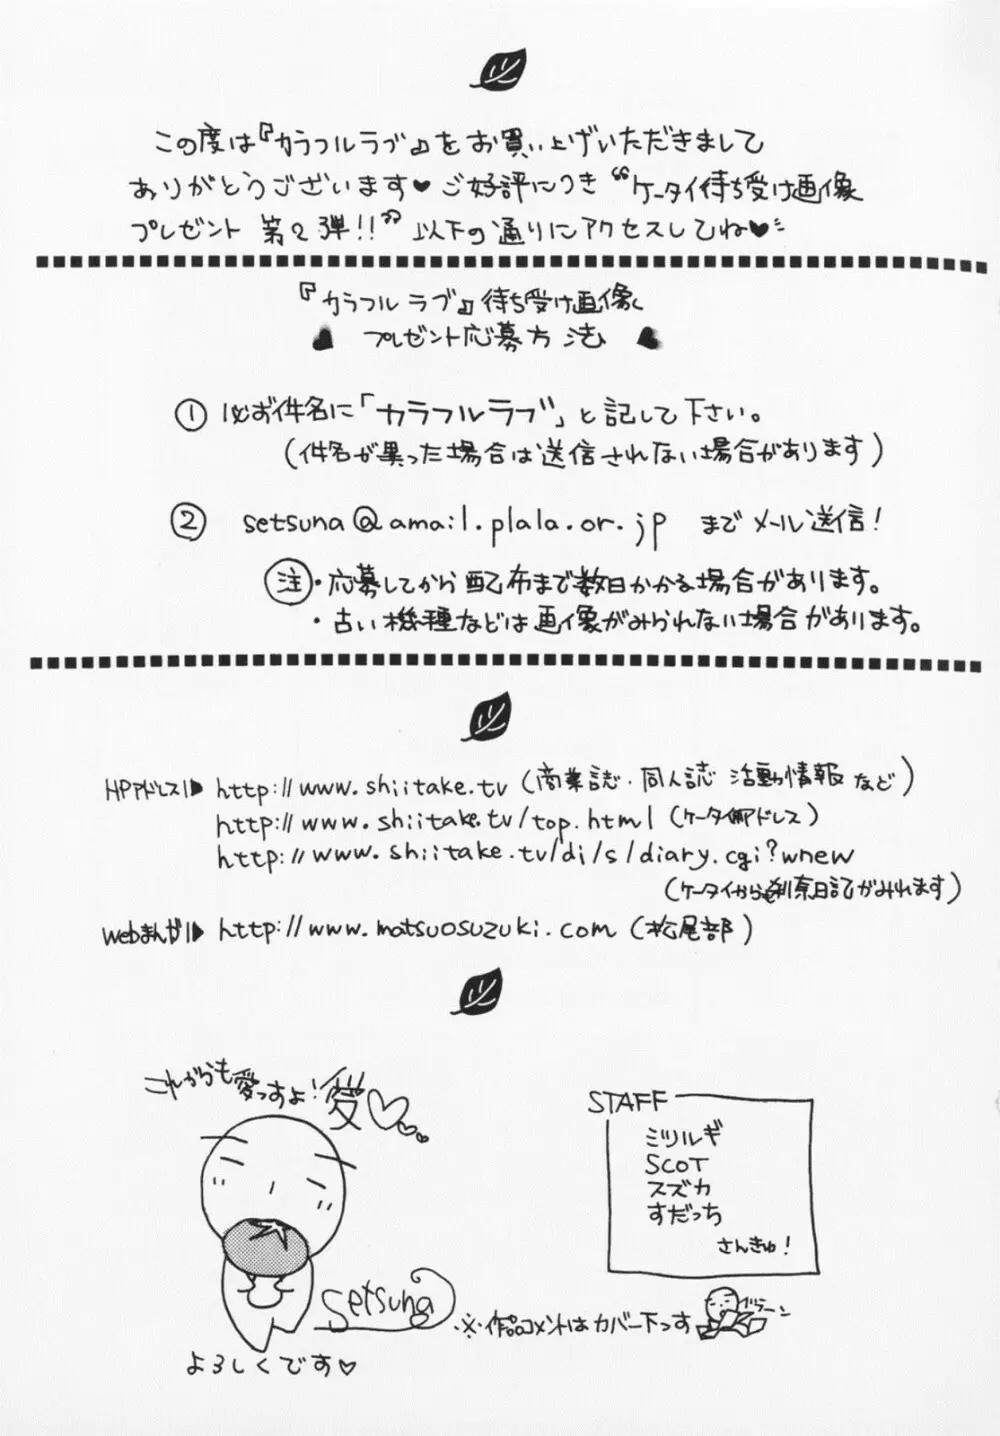 この度は『カラフルラブ』をお買い上げいただきまして
ありがとうございます♥ ご好評につき “ケータイ待ち受け画像
プレゼント 第2弾!!” 以下の通りにアクセスしてね♥
『カラフルラブ』待ち受け画像
プレゼント応募方法
① 必ず件名に「カラフルラブ」と記して下さい。
(件名が異った場合は送信されない場合があります)
② setsuna@amail.plala.or.jp までメール送信!
注・応募してから配布まで数日かかる場合があります。
・古い機種などは画像がみられない場合があります。
HPアドレス▶ http://www.shiitake.tv (商業誌・同人誌 活動情報など)
http://www.shiitake.tv/top.html (ケータイ用アドレス)
http://www.shiitake.tv/di/s/diary.cgi?wnew
(ケータイからも刹奈日記がみれます)
Webまんが▶ http://www.matsuosuzuki.com (松尾部)
これからも愛っすよ! 愛♡
STAFF
ミツルギ
SCOT
スズカ
すだっち
さんきゅ!
Setsuna
よろしくです♡
※作品コメントはカバー下っす